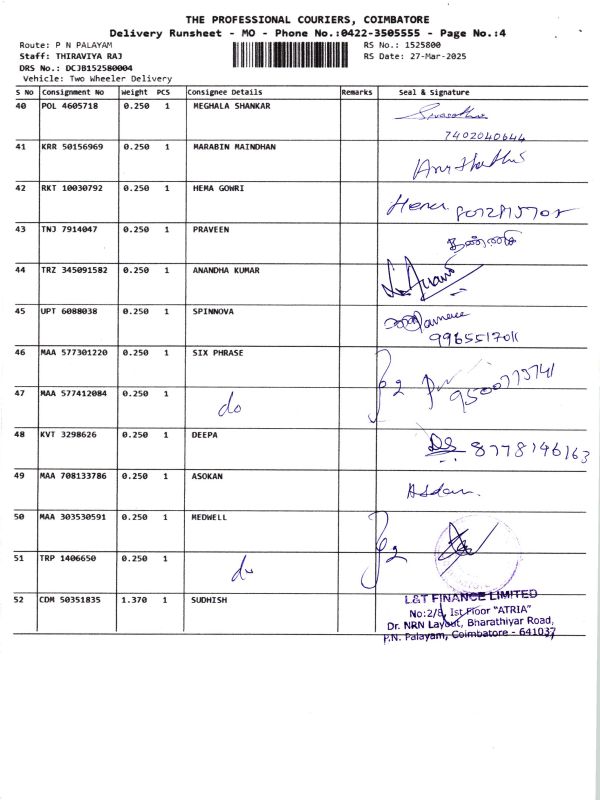 THE PROFESSIONAL COURIERS, COIMBATORE
Delivery Runsheet - MO - Phone No.:0422-3505555 - Page No.:4
Route: P N PALAYAM RS No.: 1525800
Staff: THIRAVIYA RAJ RS Date: 27-Mar-2025
DRS No.: DCJB152580004
Vehicle: Two Wheeler Delivery
S No Consignment No Weight PCS Consignee Details Remarks Seal & Signature
40 POL 4605718 0.250 1 MEGHALA SHANKAR
7402040644
41 KRR 50156969 0.250 1 MARABIN MAINDHAN
42 RKT 10030792 0.250 1 HEMA GOWRI Hema
43 TNJ 7914047 0.250 1 PRAVEEN
44 TRZ 345091582 0.250 1 ANANDHA KUMAR
45 UPT 6088038 0.250 1 SPINNOVA
9965517011
46 MAA 577301220 0.250 1 SIX PHRASE 2 9500775741
47 MAA 577412084 0.250 1 do
48 KVT 3298626 0.250 1 DEEPA DS 8778146163
49 MAA 708133786 0.250 1 ASOKAN
50 MAA 303530591 0.250 1 MEDWELL 2
51 TRP 1406650 0.250 1 do
52 CDM 50351835 1.370 1 SUDHISH L&T FINANCE LIMITED
No:2/8, Ist Floor "ATRIA"
Dr. NRN Layout, Bharathiyar Road,
P.N. Palayam, Coimbatore - 641037